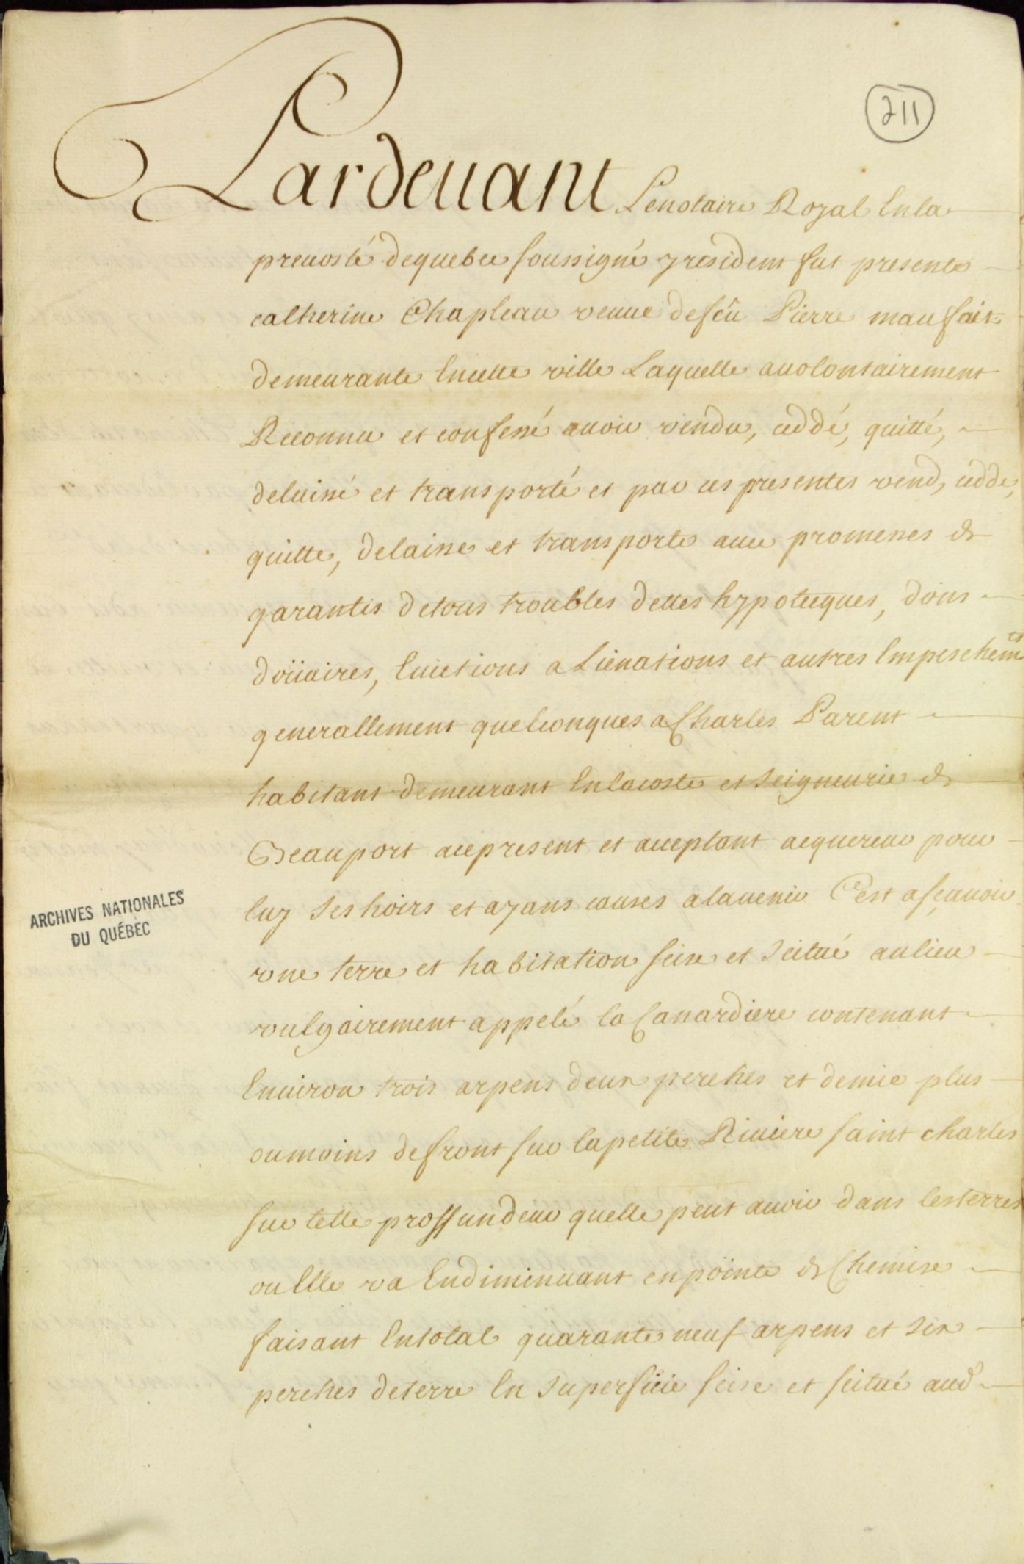 211
Pardeuant Lenotaire Royal Enla
preuosté dequebec soussigné y resident fut presente
catherine Chapleau veuue defeu Pierre maufait
demeurante Encette ville Laquelle auolontairement
Reconnu et confessé auoir vendu, ceddé, quitté,
delaissé et transporté et par ces presentes vend, cedde,
quitte, delaisse et transporte auec promesses de
garantis detous troubles dettes hypotecques, dons
doüaires, Euictions alienations et autres Empeschemts
generallement quelconques a Charles Parent
habitant demeurant Enlacoste et seigneurie de
Beauport acepresent et acceptant acquereur pour
luy ses hoirs et ayans causes alauenir C'est asçauoir
vne terre et habitation sise et scitué aulieu
vulgairement appelé la Canardiere contenant
Enuiron trois arpens deux perches et demie plus
oumoins defront sur lapetite Riuiere saint charles
sur telle proffundeur quelle peut auoir dans lesterres
ou Elle va Endiminuant enpointe de Chemise
faisant Entotal quarante neuf arpens et six
perches deterre En superficie sise et scitué aud
ARCHIVES NATIONALES
DU QUÉBEC